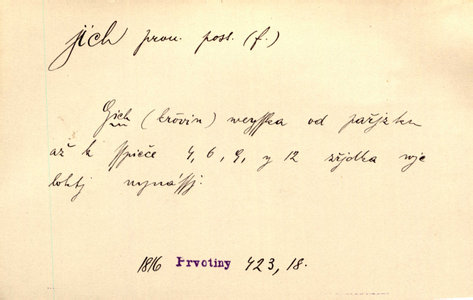 jich pron. poss. (f.)
Gich (křovin) weyſſka od pařjzku
až k ſſpičče 4, 6, 9, y 12 zřjdka wje
loktj wynáſſj.
1816 Prvotiny 423, 18.